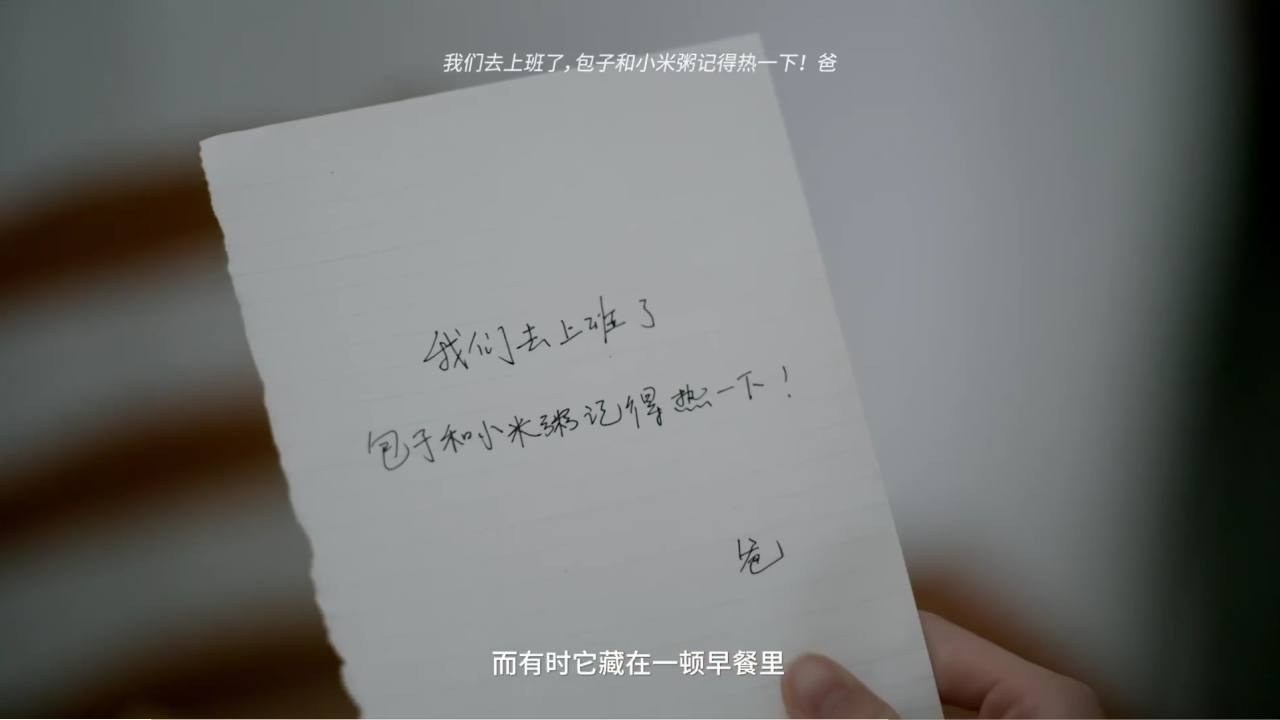 我们去上班了,包子和小米粥记得热一下！爸
我们去上班了
包子和小米粥记得热一下！
爸
而有时它藏在一顿早餐里